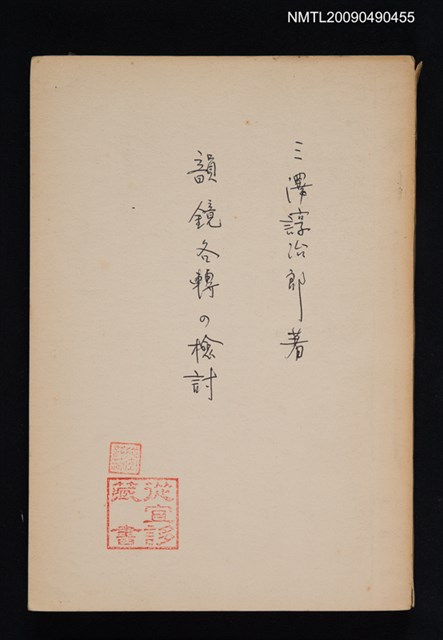 NMTL20090490455
三澤諄治郎著
韻鏡各轉の檢討
從宜誃
藏書